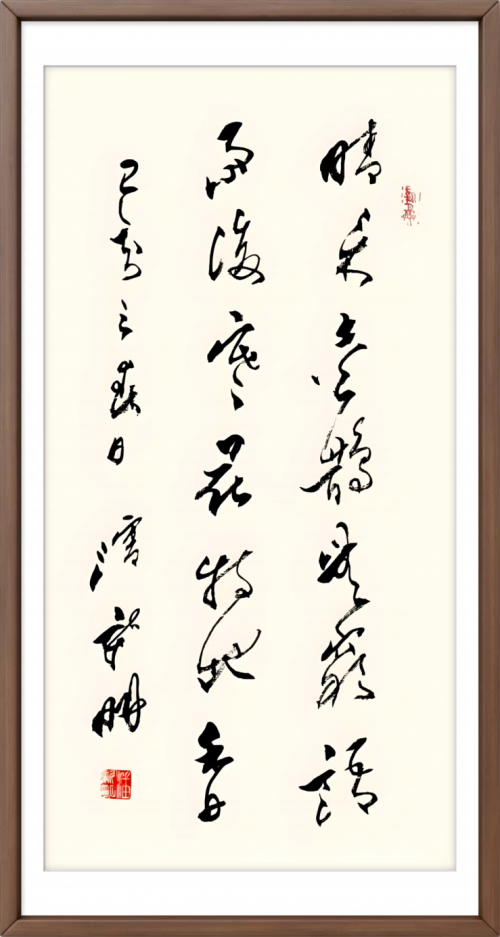 晴来喜鵲無窮語
雨後寒花特地香
己卯之春日